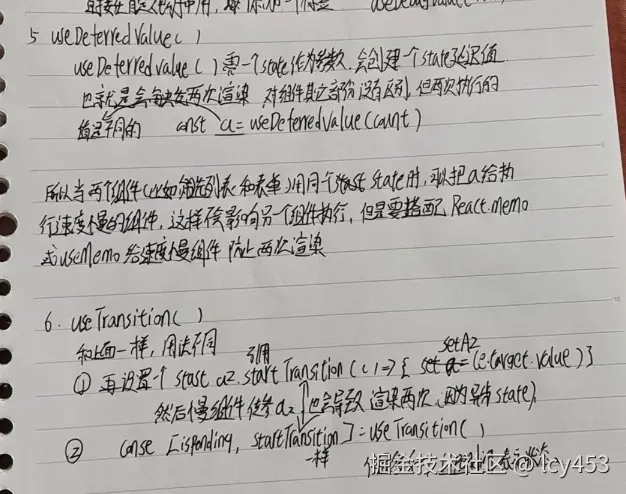 直接在自定义钩子中用,
5 useDeferredValue()
useDeferredvalue()需一个state作为参数,会创建一个state延迟值
也就是会触发两次渲染 对组件其它部分没有区别,但两次执行的
值是不同的 const a=useDeferredValue(count)
所以当两个组件(比如筛选列表和表单)用同个stast state时,可以把a给执
行速度慢的组件,这样不会影响另一个组件执行,但是要搭配React.memo
或useMemo给速度慢组件 防止两次渲染
6. useTransition()
和上面一样,用法不同
引用 setA2
① 再设置个stast a2.startTransition(()=>{set a=(e.target.value)}
然后慢组件依靠a2 也会导致渲染两次,因为异步state),
② conse [isPending, startTransition]=useTransition(),
一样
掘金技术社区 @ lcy453